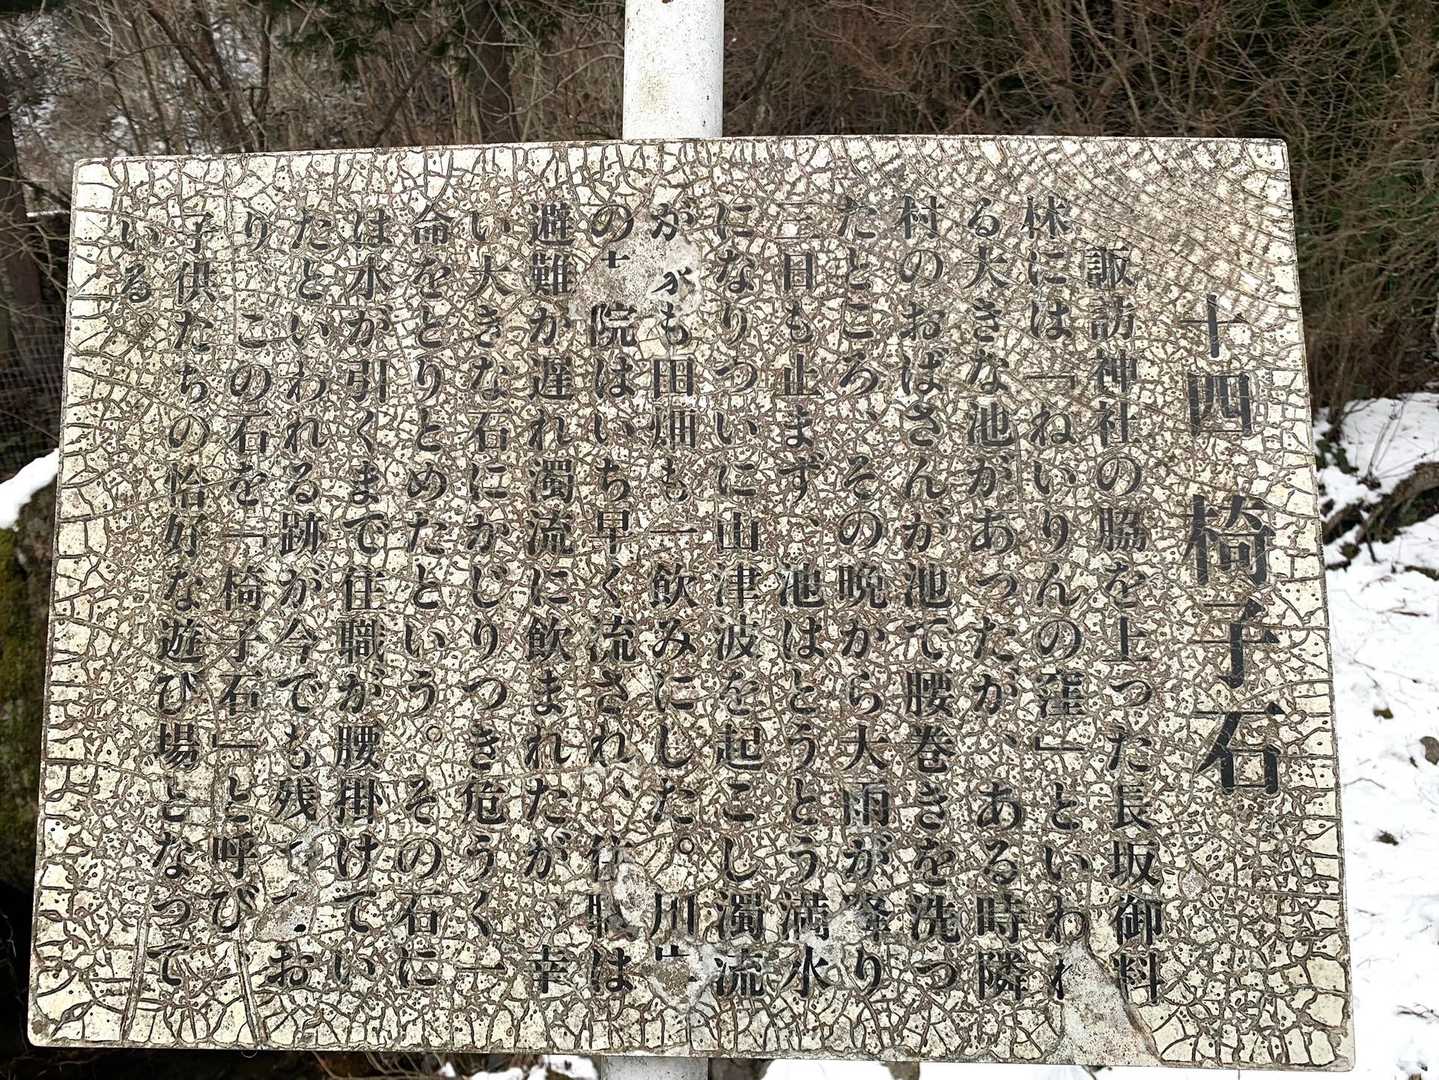 十四 椅子石
諏訪神社の脇を上った長坂御料
林には「ねいりんの窪」といわれ
る大きな池があったが、ある時隣
村のおばさんが池で腰巻きを洗っ
たところ、その晩から大雨が降り
三日も止まず、池はとうとう満水
になりついに山津波を起こし濁流
が も田畑も一飲みにした。川
の 院はいち早く流され、住職は
避難が遅れ濁流に飲まれたが、幸
い大きな石にかじりつき危うく一
命をとりとめたという。その石に
は水が引くまで住職が腰掛けてい
たといわれる跡が今でも残 お
り、この石を「椅子石」と呼び、
子供たちの恰好な遊び場となって
いる。